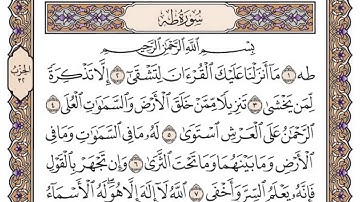 سُورَةُ طه
بِسْمِ ٱللَّهِ ٱلرَّحْمَٰنِ ٱلرَّحِيمِ
طه ١ مَآ أَنزَلْنَا عَلَيْكَ ٱلْقُرْءَانَ لِتَشْقَىٰٓ ٢ إِلَّا تَذْكِرَةً
لِّمَن يَخْشَىٰ ٣ تَنزِيلًا مِّمَّنْ خَلَقَ ٱلْأَرْضَ وَٱلسَّمَٰوَٰتِ ٱلْعُلَى ٤
ٱلرَّحْمَٰنُ عَلَى ٱلْعَرْشِ ٱسْتَوَىٰ ٥ لَهُۥ مَا فِى ٱلسَّمَٰوَٰتِ وَمَا فِى
ٱلْأَرْضِ وَمَا بَيْنَهُمَا وَمَا تَحْتَ ٱلثَّرَىٰ ٦ وَإِن تَجْهَرْ بِٱلْقَوْلِ
فَإِنَّهُۥ يَعْلَمُ ٱلسِّرَّ وَأَخْفَى ٧ ٱللَّهُ لَآ إِلَٰهَ إِلَّا هُوَ لَهُ ٱلْأَسْمَآءُ
الحِزْبُ
٣٢